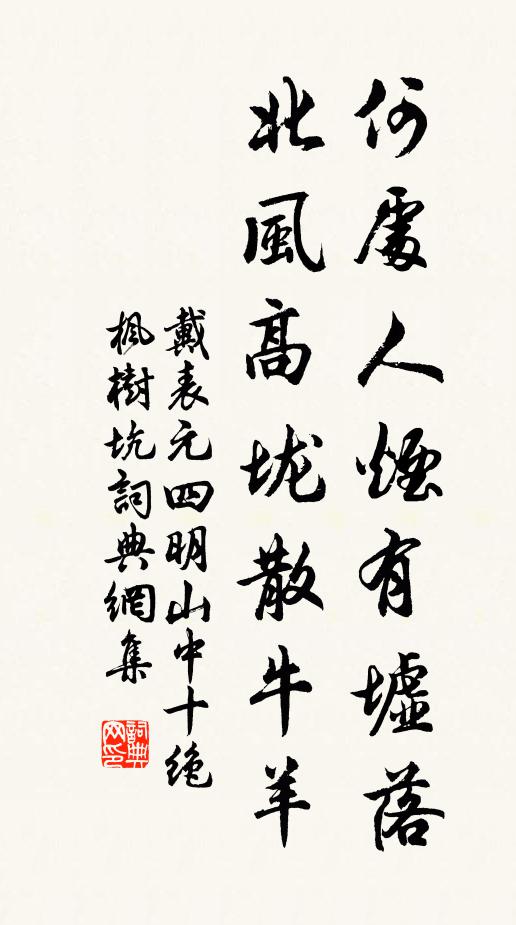 何處人煙有墟落
北風高垅散牛羊
戴表元四明山中十絶
楓樹坑詞典網集
詞典
网印